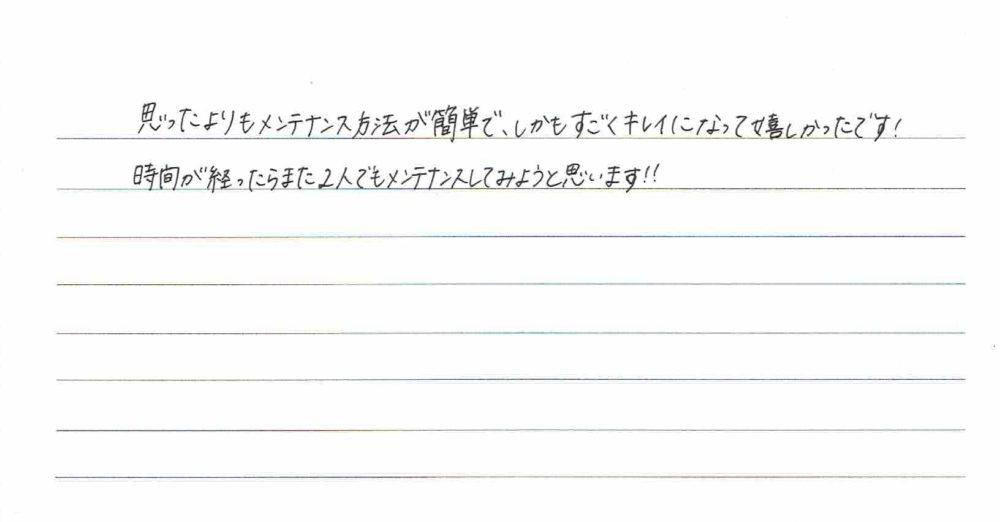 思ったよりもメンテナンス方法が簡単で、しかもすごくキレイになって嬉しかったです!
時間が経ったらまた2人でもメンテナンスしてみようと思います!!